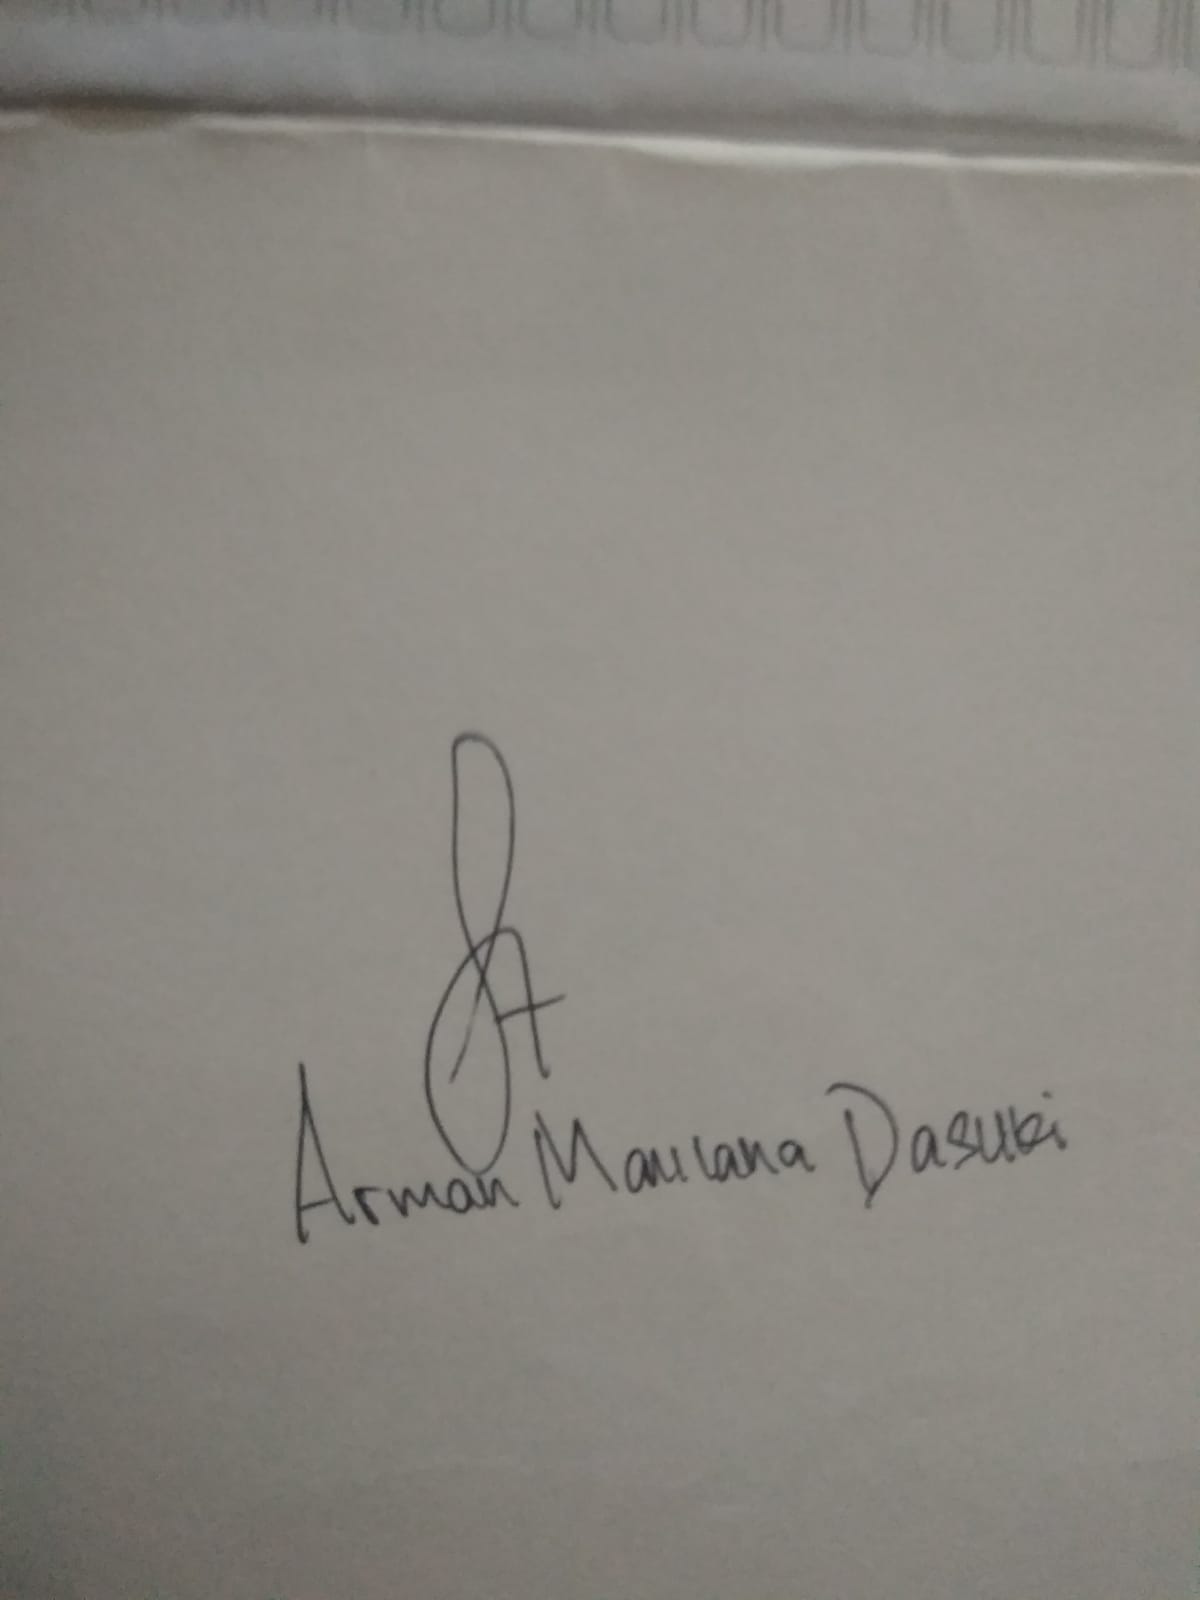 Arman Maulana Dasuki